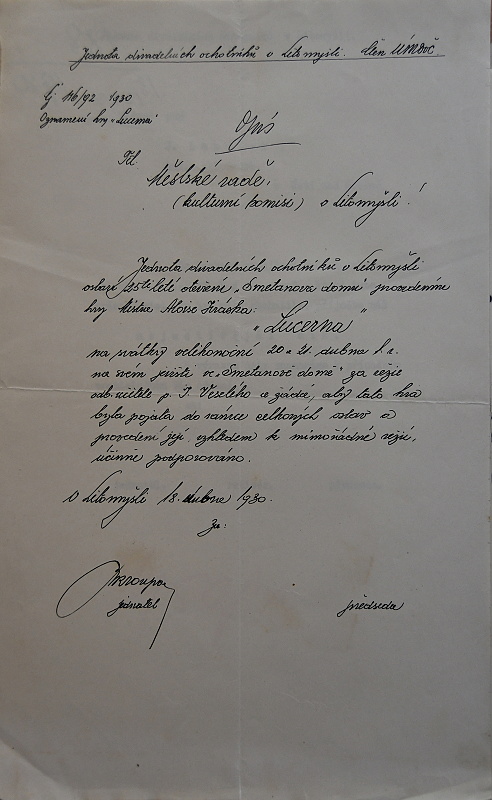 Jednota divadelních ochotníků v Litomyšli. Člen ÚMDOČ.
Čj 116/92 1930
Oznámení hry „Lucerna"
Opis
Tit.
Městské radě,
(kulturní komisi) v Litomyšli!
Jednota divadelních ochotníků v Litomyšli
oslaví 25ti leté otevření „Smetanova domu" provedením
hry Mistra Aloise Jiráska:
„Lucerna"
na svátky velikonoční 20. a 21. dubna t. r.
na svém jevišti ve „Smetanově domě" za režie
odb. učitele p. J. Veselého a žádá, aby tato hra
byla pojata do rámce celkových oslav a
provedení její, vzhledem k mimořádné režii,
účinně podporováno.
V Litomyšli 18. dubna 1930.
Za:
jednatel předseda